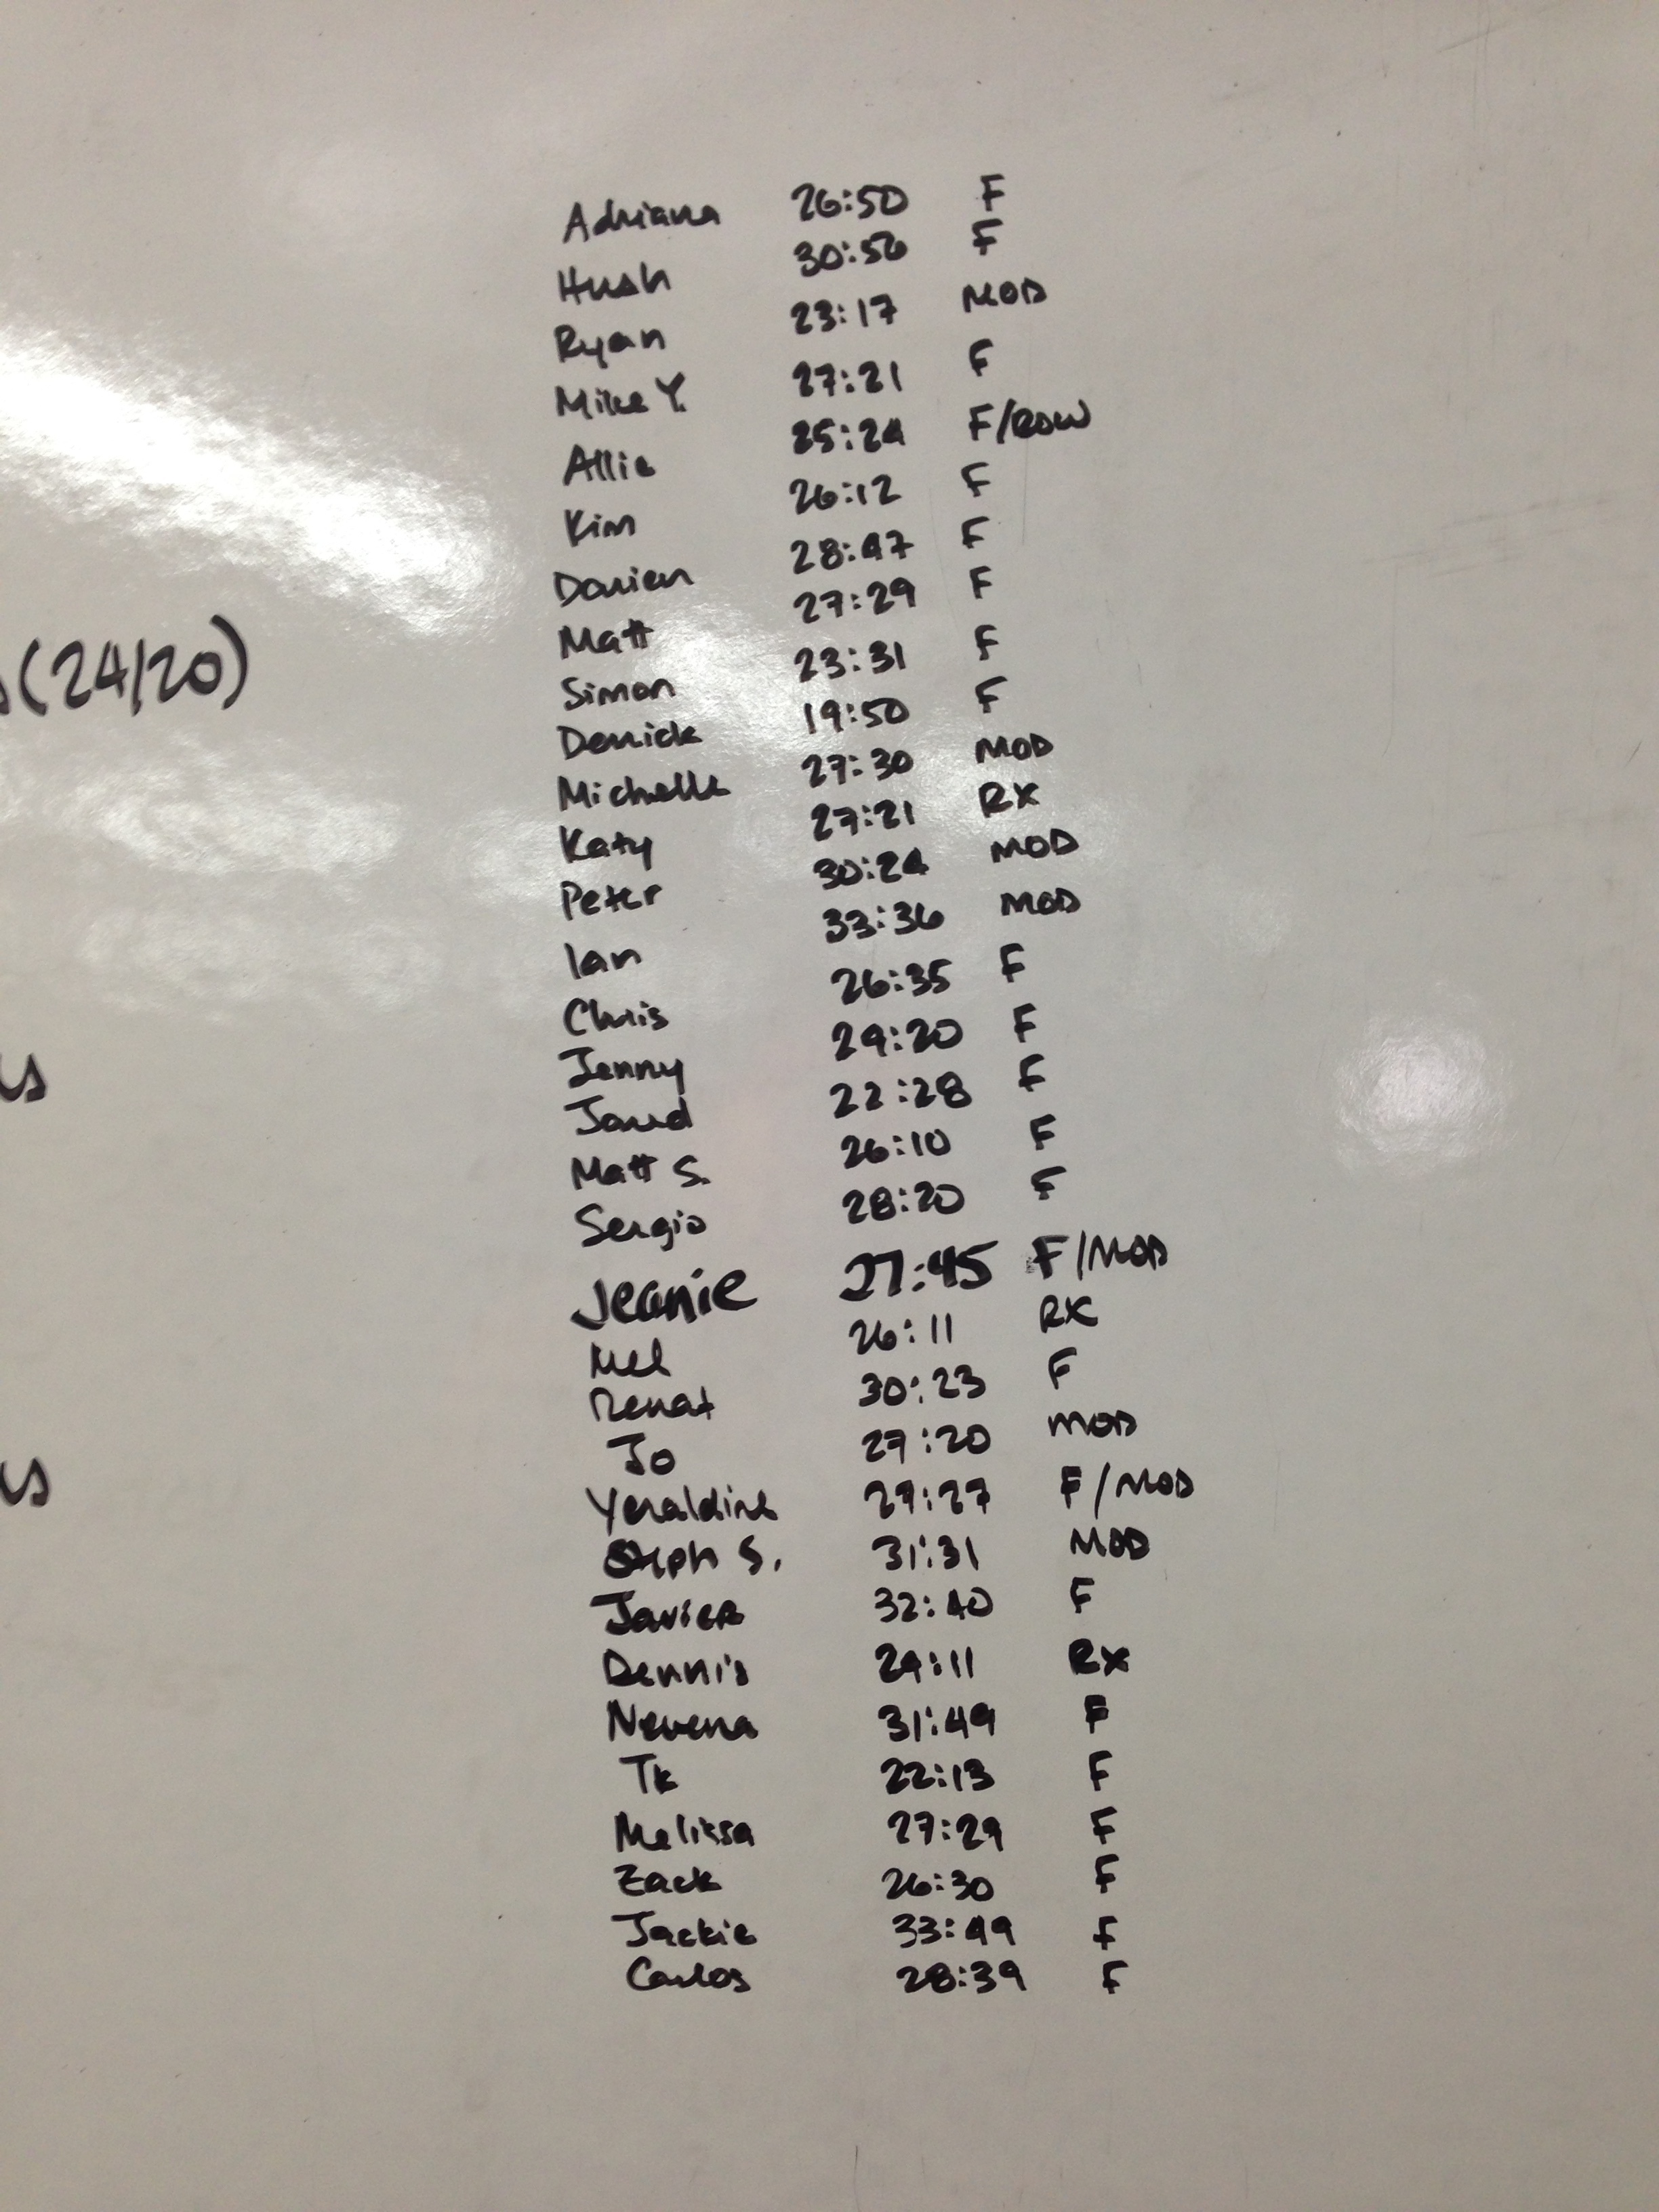 Adriana 26:50 F
Hush 30:56 F
Ryan 23:17 MOD
Mike Y. 27:21 F
Allie 25:24 F/ROW
Kim 26:12 F
Darien 28:47 F
Matt 27:29 F
(24/20)
Simon 23:31 F
Derrick 19:50 F
Michelle 27:30 MOD
Katy 27:21 RX
Peter 30:24 MOD
Ian 33:36 MOD
Chris 26:35 F
Jenny 29:20 F
Jared 22:28 F
Matt S. 26:10 F
Sergio 28:20 F
Jeanie 27:45 F/MOD
Mel 26:11 RX
Renat 30:23 F
Jo 27:20 MOD
Yeraldine 27:27 F/MOD
Steph S. 31:31 MOD
Javier 32:40 F
Dennis 29:11 RX
Nevena 31:49 F
TK 22:13 F
Melissa 27:29 F
Zack 26:30 F
Jackie 33:49 F
Carlos 28:39 F